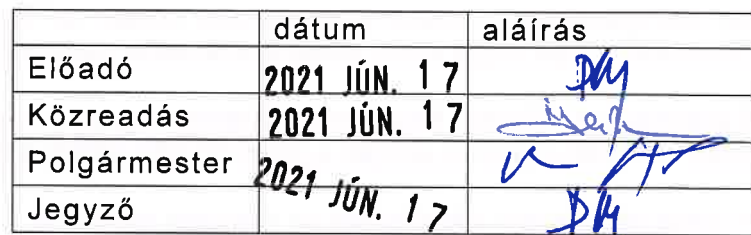 dátum aláírás
Előadó 2021 JÚN. 17
Közreadás 2021 JÚN. 17
Polgármester 2021 JÚN. 17
Jegyző